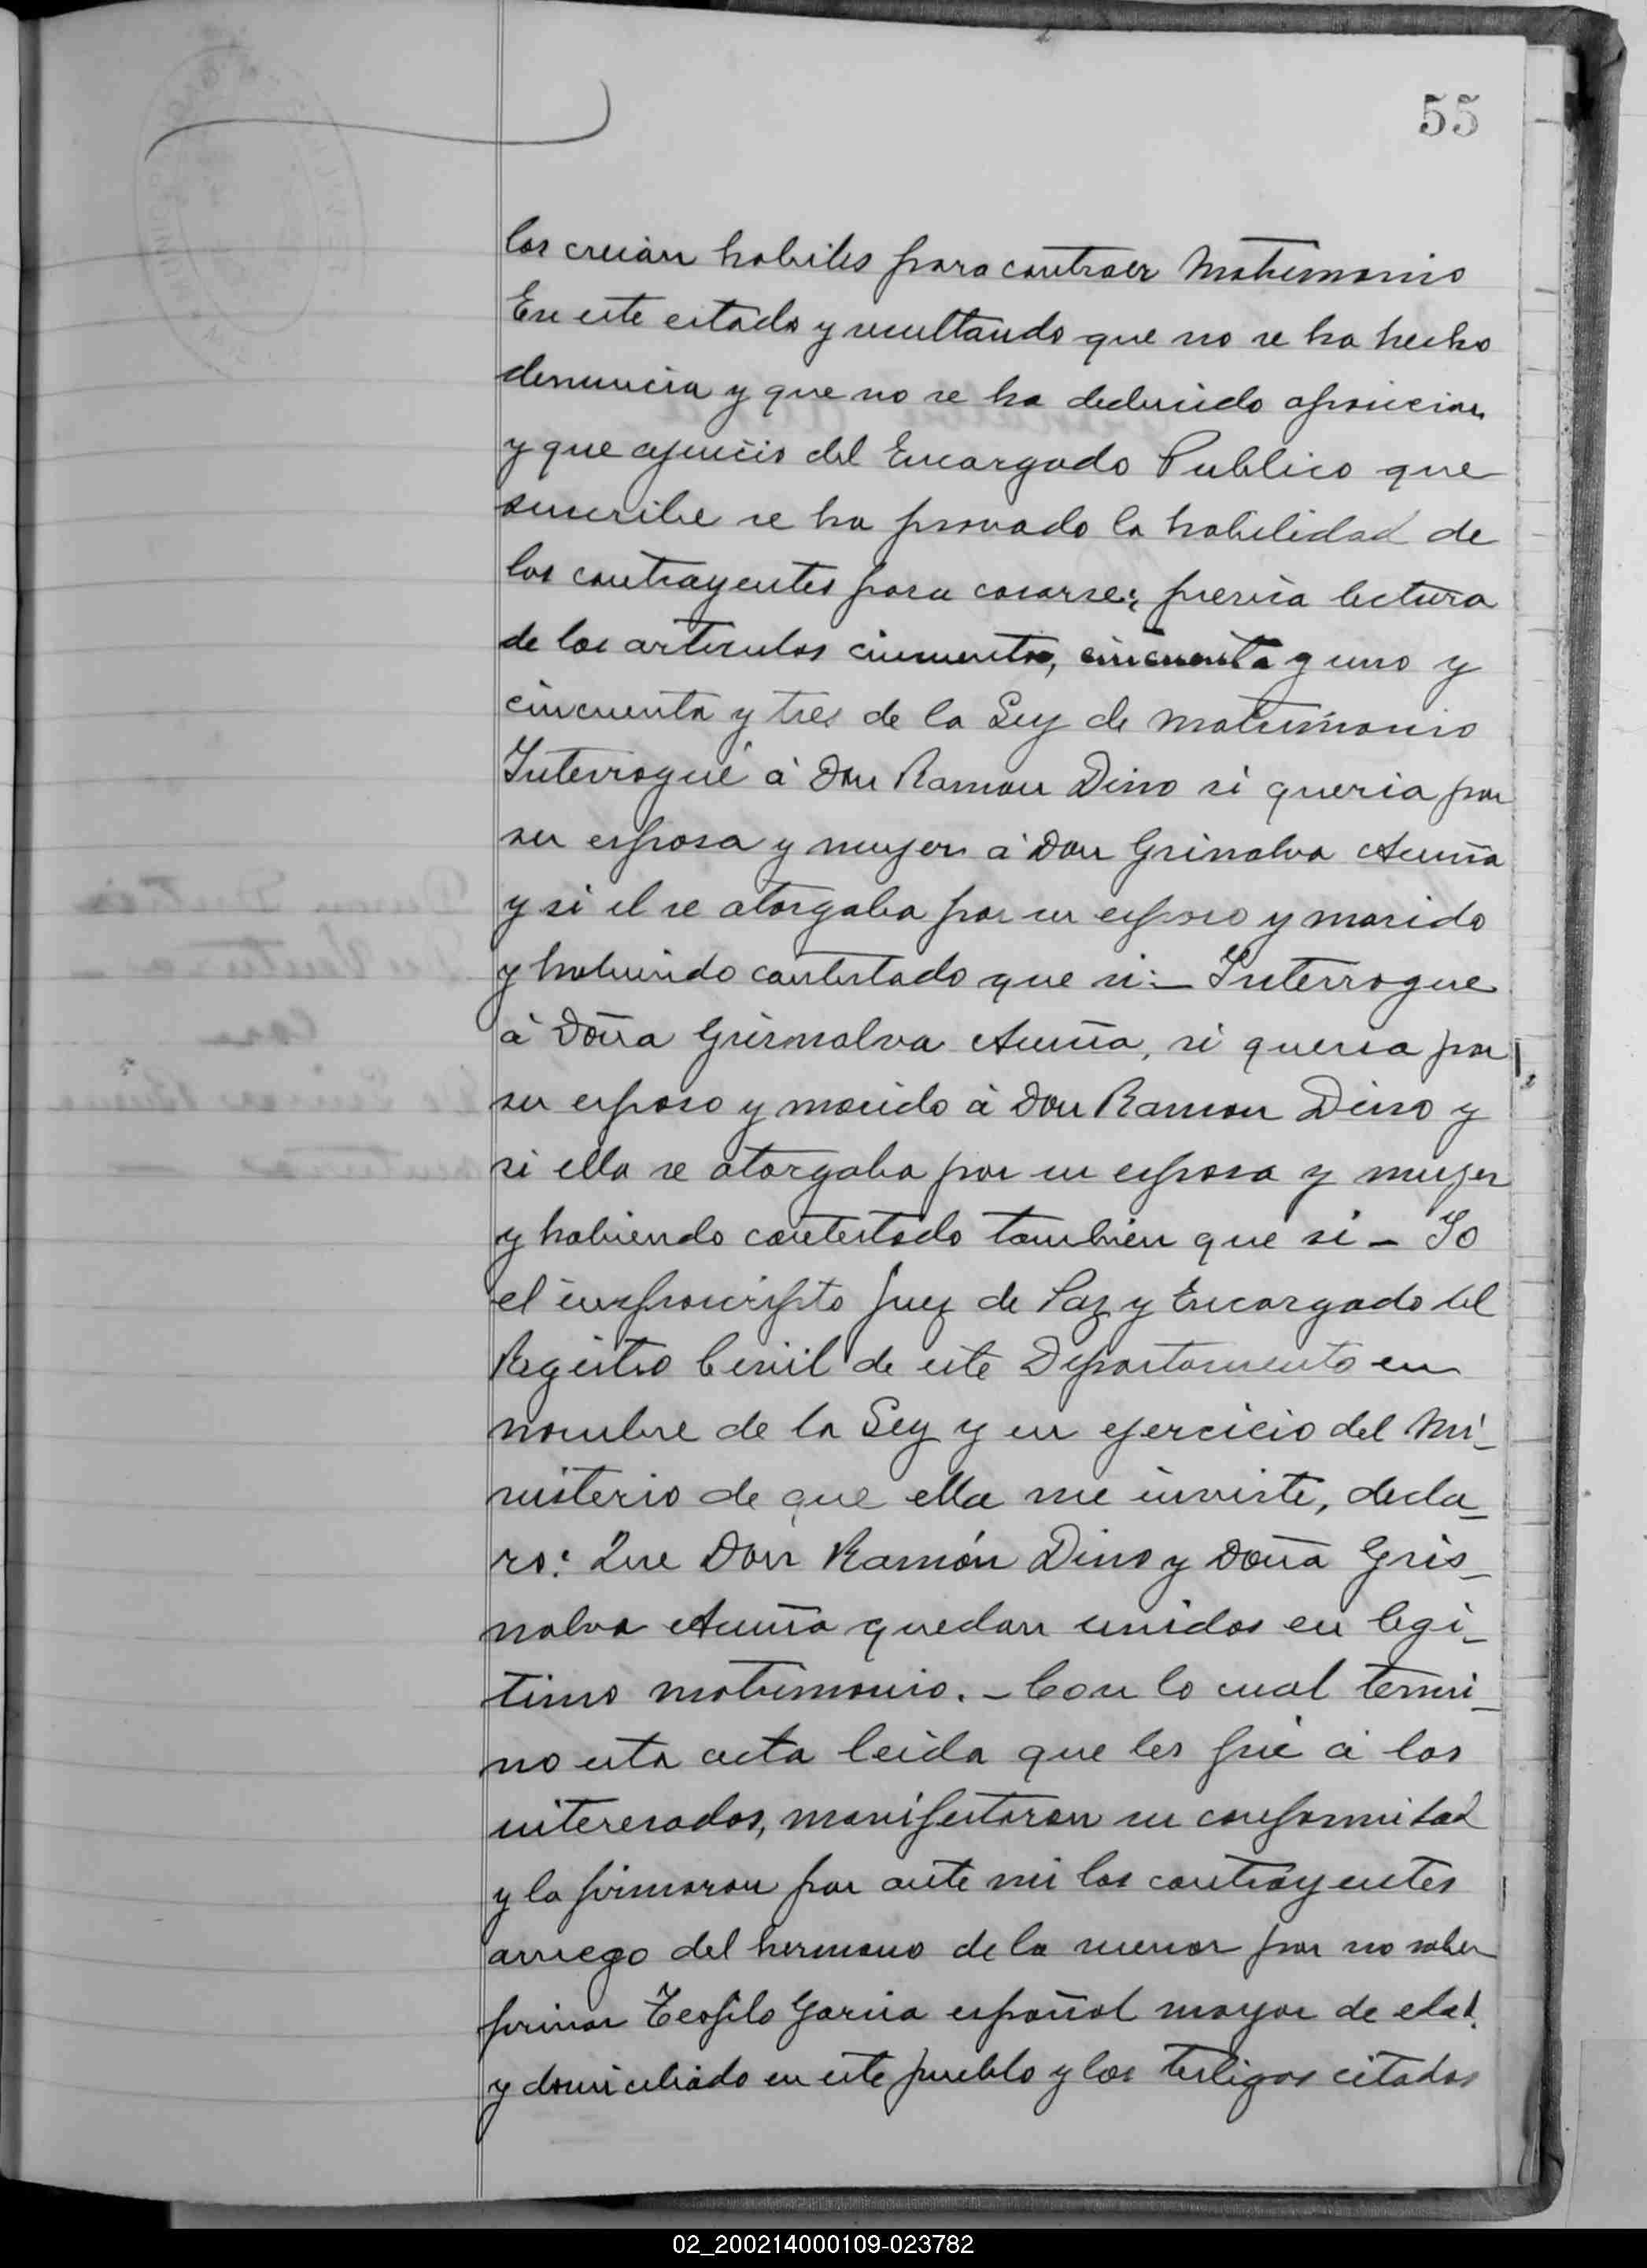 55
los creian habiles para contraer Matrimonio
En este estado y resultando que no se ha hecho
denuncia y que no se ha deducido oposicion
y que ajuicio del Encargado Publico que
suscribe se ha provado la habilidad de
los contrayentes para casarse; previa lectura
de los articulos cincuenta, cincuenta y uno y
cincuenta y tres de la Ley de matrimonio
Interrogué à Don Ramon Dino si queria por
su esposa y mujer à Don Grinalva Acuña
y si el se otorgaba por su esposo y marido
y habiendo contestado que si:— Interrogue
à Doña Grisnalva Acuña, si queria por
su esposo y marido à Don Ramon Dino y
si ella se otorgaba por su esposa y mujer
y habiendo contestado tambien que si — Yo
el infrascripto Juez de Paz y Encargado del
Registro Civil de este Departamento en
nombre de la Ley y en ejercicio del Mi-
nisterio de que ella me inviste, decla-
ro: Que Don Ramón Dino y Doña Gris-
nalva Acuña quedan unidos en legi-
timo matrimonio. — Con lo cual termi-
no esta acta leida que les fué à los
interesados, manifestaron su conformidad
y la firmaron por ante mi los contrayentes
arruego del hermano de la menor por no saber
firmar Teofilo Garcia español mayor de edad
y domiciliado en este pueblo y los testigos citados
02_200214000109-023782